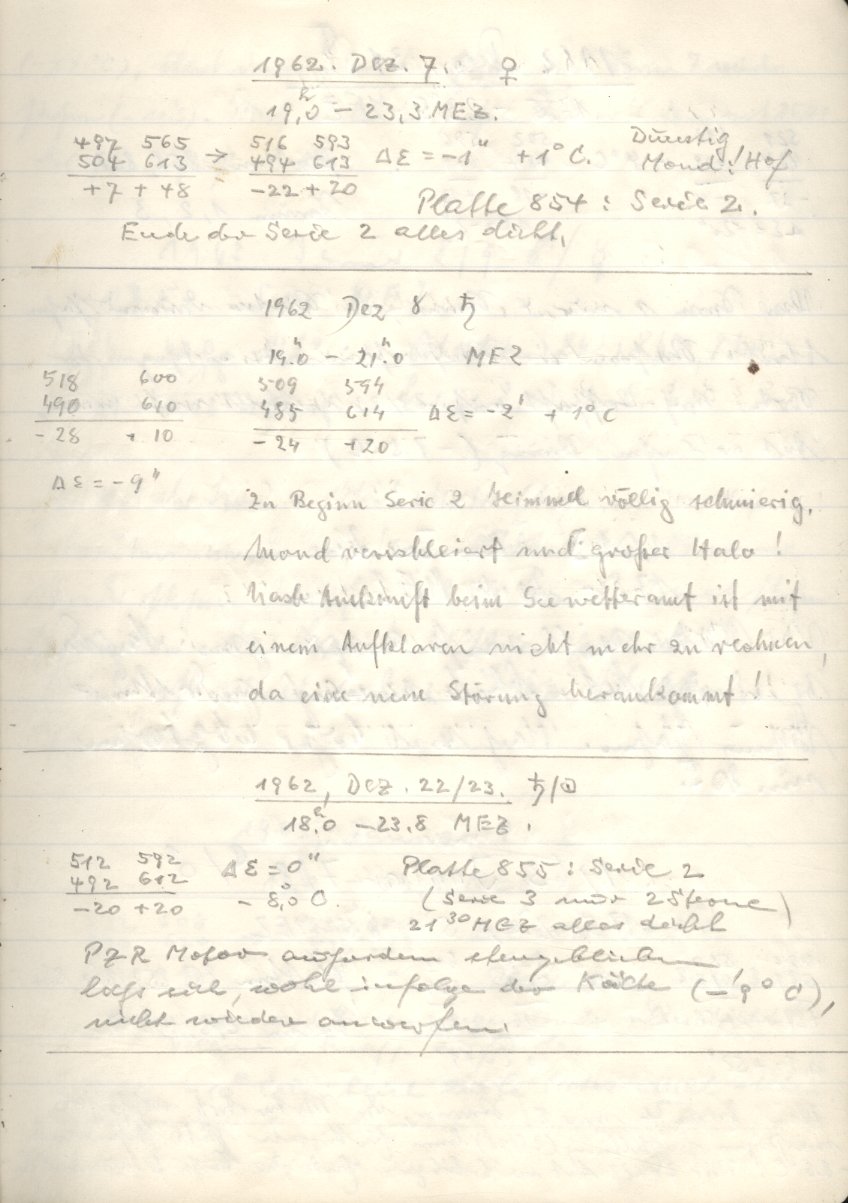 1962. Dez. 7. ♀
19,ʰ0 – 23,3 MEZ.
497 565 → 516 593 ΔΕ = -1" +1°C. Dunstig
504 613 494 613 Mond! Hof
+7 +48 -22 +20
Platte 854 : Serie 2.
Ende der Serie 2 alles dicht.
1962 Dez 8 ♄
19.ʰ0 – 21.ʰ0 MEZ
518 600 509 594
490 610 485 614 ΔΕ = -2' +1°C
-28 +10 -24 +20
ΔΕ = -9"
Zu Beginn Serie 2 Himmel völlig schmierig,
Mond verschleiert und großer Halo !
Nach Auskunft beim Seewetteramt ist mit
einem Aufklaren nicht mehr zu rechnen,
da eine neue Störung herankommt !
1962, Dez. 22/23. ♄/☉
18.ʰ0 – 23.8 MEZ.
512 592 ΔΕ = 0" Platte 855 : Serie 2
492 612 - 8,°0 C. (Serie 3 nur 2 Sterne)
-20 +20 21³⁰ MEZ alles dicht
PZR Motor außerdem stengeblieben
läßt sich, wohl infolge der Kälte (-9° C),
nicht wieder anwerfen.